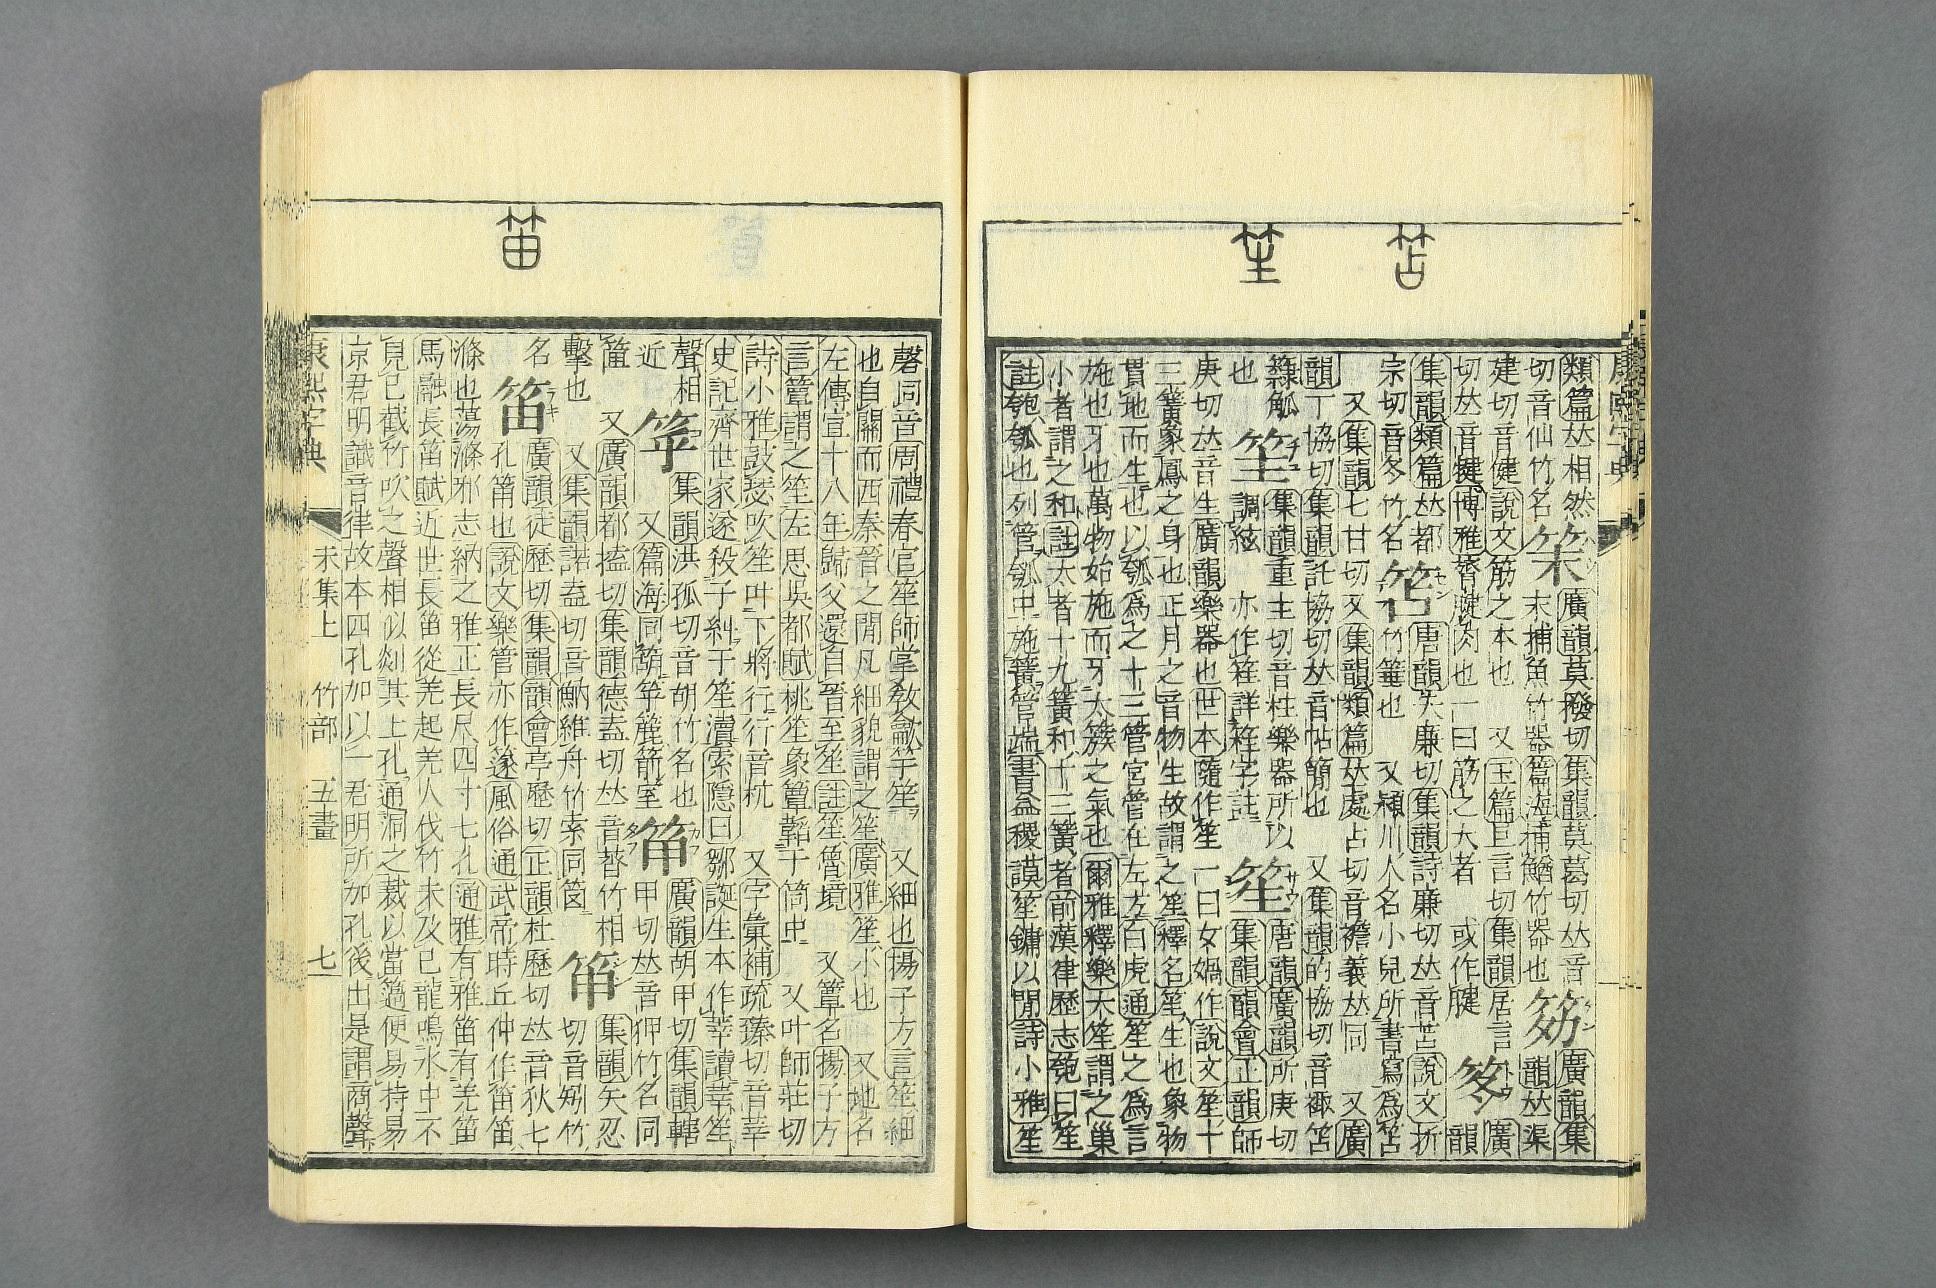 笘
笙
類篇𠀤相然笨廣韻莫撥切集韻莫葛切𠀤音笏廣韻集
切音仙竹名末捕魚竹器篇海捕鰌竹器也韻𠀤渠
建切音健說文筋之本也 又玉篇巨言切集韻居言笗廣
切𠀤音犍博雅膂腱肉也一曰筋之大者 或作腱韻
集韻類篇𠀤都笘唐韻失廉切集韻詩廉切𠀤音苫說文折
宗切音冬竹名竹箠也 又潁川人名小兒所書寫為笘
又集韻七甘切又集韻類篇𠀤處占切音襜義𠀤同 又廣
韻丁協切集韻託協切𠀤音帖簡也 又集韻的協切音䎃笘
籙觚笁集韻重主切音柱樂器所以笙唐韻廣韻所庚切
也調絃 亦作䇠詳䇠字註集韻韻會正韻師
庚切𠀤音生廣韻樂器也世本隨作笙一曰女媧作說文笙十
三簧象鳳之身也正月之音物生故謂之笙釋名笙生也象物
貫地而生也以匏為之十三管宮管在左方白虎通笙之為言
施也牙也萬物始施而牙大簇之氣也爾雅釋樂大笙謂之巢
小者謂之和註大者十九簧和十三簧者前漢律歷志匏曰笙
註匏瓠也列管瓠中施簧管端書益稷謨笙鏞以閒詩小雅笙
笛
磬同音周禮春官笙師掌敎龡竽笙 又細也揚子方言笙細
也自關而西秦晉之閒凡細貌謂之笙廣雅笙小也 又地名
左傳宣十八年歸父還自晉至笙註笙魯境 又簟名揚子方
言簟謂之笙左思吳都賦桃笙象簟韜于筒中 又叶師莊切
詩小雅鼓瑟吹笙叶下將行行音杭 又字彙補疏臻切音莘
史記齊世家遂殺子糾于笙瀆索隱曰鄒誕生本作莘讀莘笙
聲相 䇢集韻洪孤切音胡竹名也 笚廣韻胡甲切集韻轄
近 又篇海同䇢竽簏箭室甲切𠀤音狎竹名同
𥯤 又廣韻都搕切集韻德盍切𠀤音𦗖竹相 笚集韻矢忍
擊也 又集韻諾盍切音魶維舟竹索同䈫切音矧竹
名笛廣韻徒歷切集韻韻會亭歷切正韻杜歷切𠀤音狄七
孔筩也說文樂管亦作篴風俗通武帝時丘仲作笛笛
滌也蕩滌邪志納之雅正長尺四寸七孔通雅有雅笛有羌笛
馬融長笛賦近世長笛從羌起羌人伐竹未及已龍鳴水中不
見已截竹吹之聲相似剡其上孔通洞之裁以當簻便易持易
京君明識音律故本四孔加以一君明所加孔後出是謂商聲
康熙字典 未集上 竹部 五畫 七